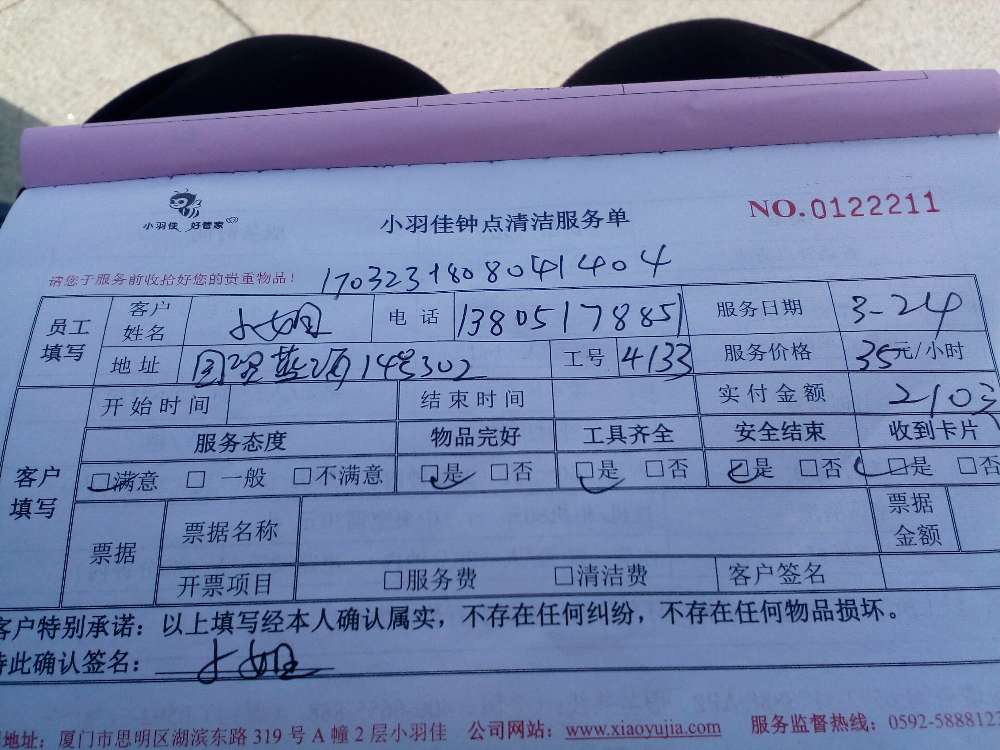 小羽佳 好管家
小羽佳钟点清洁服务单
NO.0122211
请您于服务前收拾好您的贵重物品！
1703231808041404
员工填写
客户姓名
电话 13805178851
服务日期 3-24
地址 14号302
工号 4133
服务价格 35元/小时
客户填写
开始时间
结束时间
实付金额 210元
服务态度 物品完好 工具齐全 安全结束 收到卡片
□满意 □一般 □不满意 □是 □否 □是 □否 □是 □否 □是 □否
票据
票据名称
票据金额
开票项目 □服务费 □清洁费 客户签名
客户特别承诺：以上填写经本人确认属实，不存在任何纠纷，不存在任何物品损坏。
特此确认签名：
地址：厦门市思明区湖滨东路 319 号 A 幢 2 层小羽佳 公司网站：www.xiaoyujia.com 服务监督热线：0592-588812